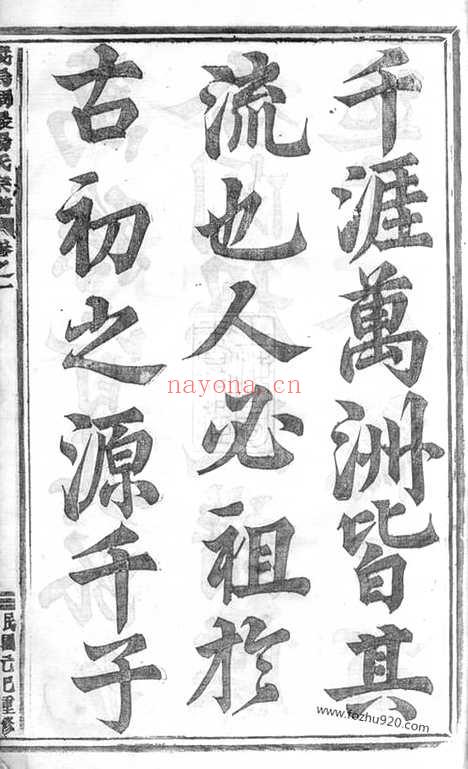 千涯萬洲皆其
流也人必祖於
古初之源千子
楊氏宗譜
卷之一
民國己巳重修
nayona.cn
www.fozhu920.com